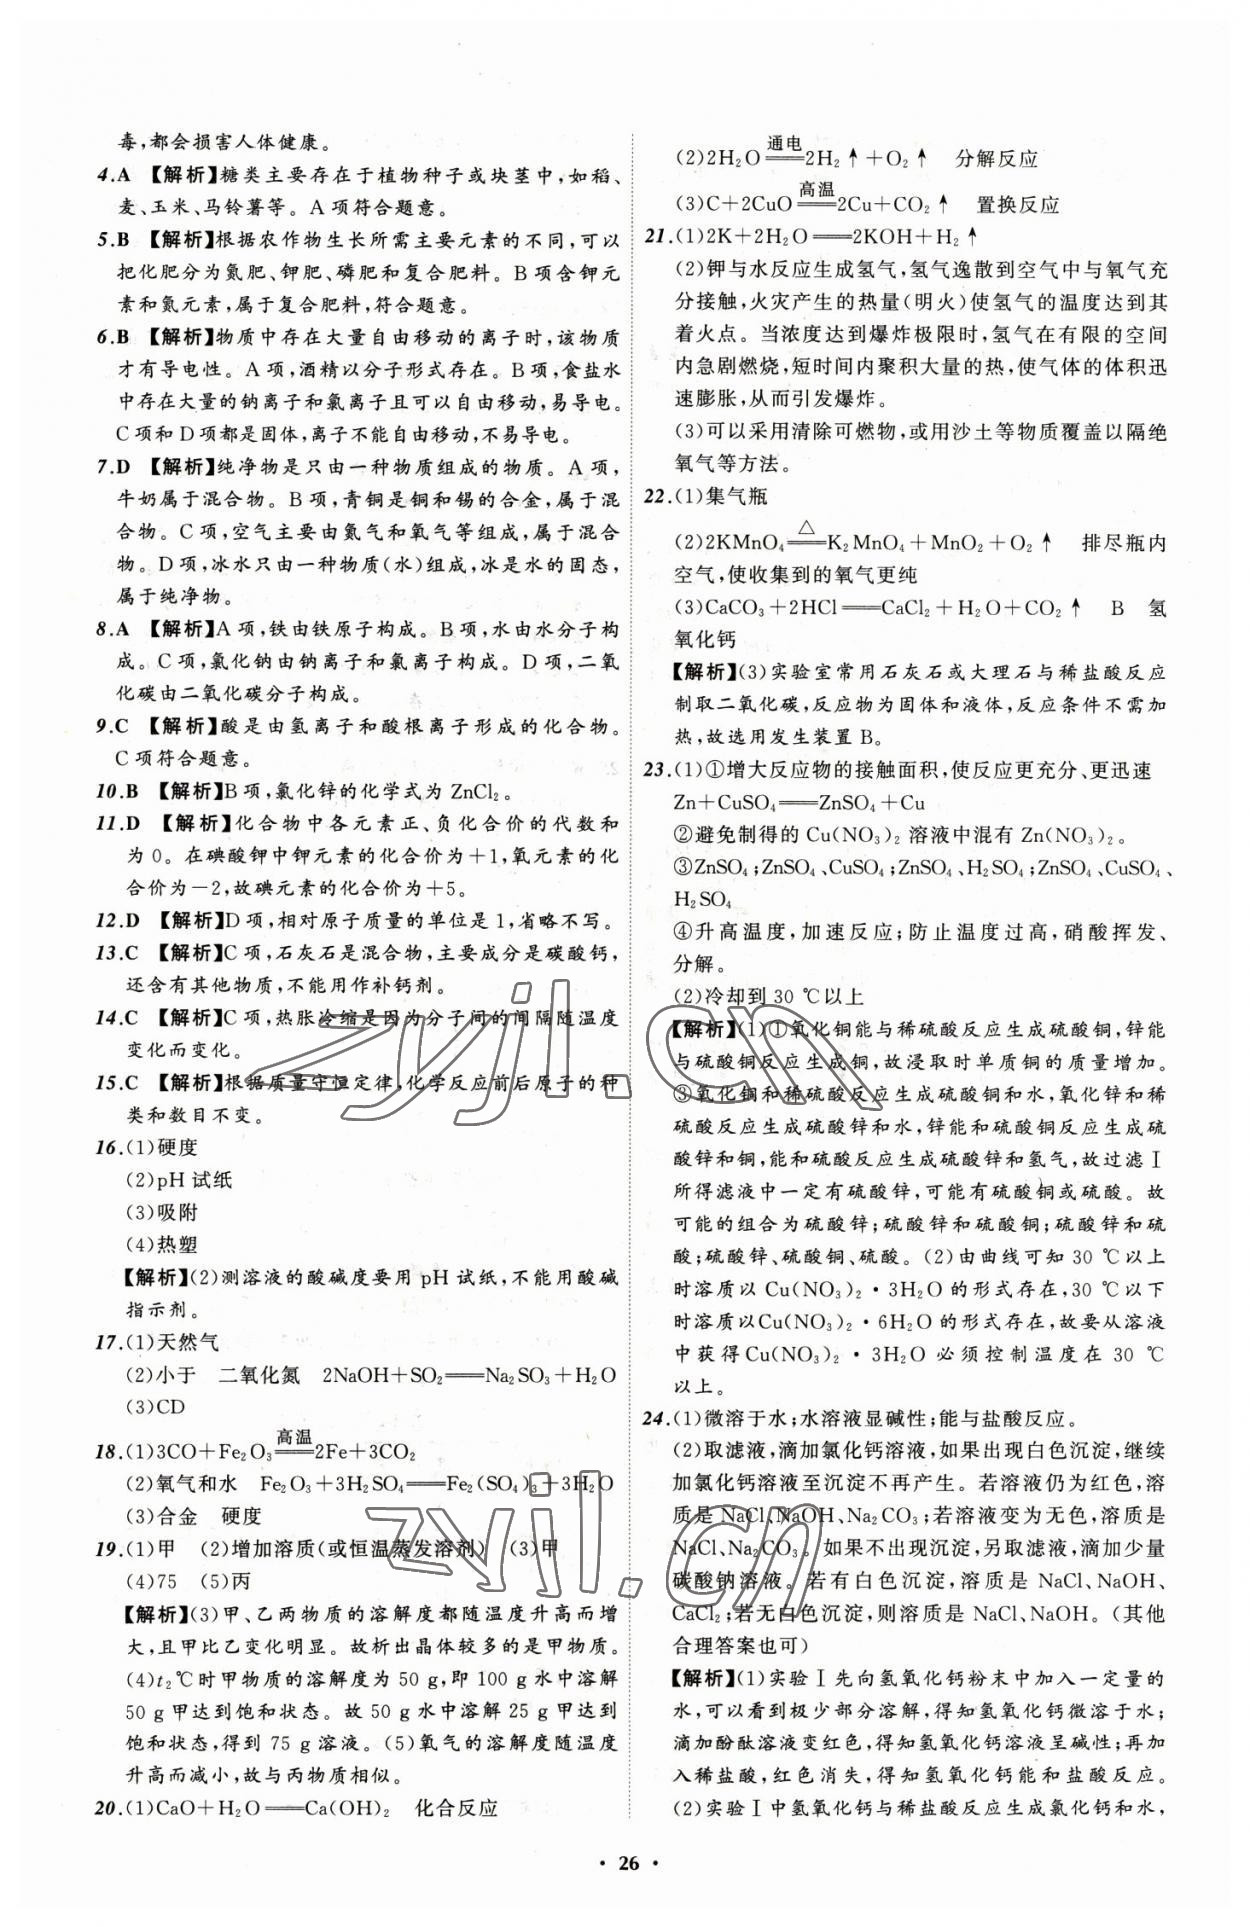 毒,都会损害人体健康。
4.A 【解析】糖类主要存在于植物种子或块茎中,如稻、
麦、玉米、马铃薯等。A 项符合题意。
5.B 【解析】根据农作物生长所需主要元素的不同,可以
把化肥分为氮肥、钾肥、磷肥和复合肥料。B 项含钾元
素和氮元素,属于复合肥料,符合题意。
6.B 【解析】物质中存在大量自由移动的离子时,该物质
才有导电性。A 项,酒精以分子形式存在。B 项,食盐水
中存在大量的钠离子和氯离子且可以自由移动,易导电。
C 项和 D 项都是固体,离子不能自由移动,不易导电。
7.D 【解析】纯净物是只由一种物质组成的物质。A 项,
牛奶属于混合物。B 项,青铜是铜和锡的合金,属于混
合物。C 项,空气主要由氮气和氧气等组成,属于混合
物。D 项,冰水只由一种物质(水)组成,冰是水的固态,
属于纯净物。
8.A 【解析】A 项,铁由铁原子构成。B 项,水由水分子构
成。C 项,氯化钠由钠离子和氯离子构成。D 项,二氧
化碳由二氧化碳分子构成。
9.C 【解析】酸是由氢离子和酸根离子形成的化合物。
C 项符合题意。
10.B 【解析】B 项,氯化锌的化学式为 ZnCl₂。
11.D 【解析】化合物中各元素正、负化合价的代数和
为 0。在碘酸钾中钾元素的化合价为+1,氧元素的化
合价为−2,故碘元素的化合价为+5。
12.D 【解析】D 项,相对原子质量的单位是 1,省略不写。
13.C 【解析】C 项,石灰石是混合物,主要成分是碳酸钙,
还含有其他物质,不能用作补钙剂。
14.C 【解析】C 项,热胀冷缩是因为分子间的间隔随温度
变化而变化。
15.C 【解析】根据质量守恒定律,化学反应前后原子的种
类和数目不变。
16.(1)硬度
(2)pH 试纸
(3)吸附
(4)热塑
【解析】(2)测溶液的酸碱度要用 pH 试纸,不能用酸碱
指示剂。
17.(1)天然气
(2)小于 二氧化氮 2NaOH+SO₂══Na₂SO₃+H₂O
(3)CD
18.(1)3CO+Fe₂O₃══高温══2Fe+3CO₂
(2)氧气和水 Fe₂O₃+3H₂SO₄══Fe₂(SO₄)₃+3H₂O
(3)合金 硬度
19.(1)甲 (2)增加溶质(或恒温蒸发溶剂) (3)甲
(4)75 (5)丙
【解析】(3)甲、乙两物质的溶解度都随温度升高而增
大,且甲比乙变化明显。故析出晶体较多的是甲物质。
(4)t₂℃时甲物质的溶解度为 50 g,即 100 g 水中溶解
50 g 甲达到饱和状态。故 50 g 水中溶解 25 g 甲达到
饱和状态,得到 75 g 溶液。(5)氧气的溶解度随温度
升高而减小,故与丙物质相似。
20.(1)CaO+H₂O══Ca(OH)₂ 化合反应
(2)2H₂O══通电══2H₂↑+O₂↑ 分解反应
(3)C+2CuO══高温══2Cu+CO₂↑ 置换反应
21.(1)2K+2H₂O══2KOH+H₂↑
(2)钾与水反应生成氢气,氢气逸散到空气中与氧气充
分接触,火灾产生的热量(明火)使氢气的温度达到其
着火点。当浓度达到爆炸极限时,氢气在有限的空间
内急剧燃烧,短时间内聚积大量的热,使气体的体积迅
速膨胀,从而引发爆炸。
(3)可以采用清除可燃物,或用沙土等物质覆盖以隔绝
氧气等方法。
22.(1)集气瓶
(2)2KMnO₄══△══K₂MnO₄+MnO₂+O₂↑ 排尽瓶内
空气,使收集到的氧气更纯
(3)CaCO₃+2HCl══CaCl₂+H₂O+CO₂↑ B 氢
氧化钙
【解析】(3)实验室常用石灰石或大理石与稀盐酸反应
制取二氧化碳,反应物为固体和液体,反应条件不需加
热,故选用发生装置 B。
23.(1)①增大反应物的接触面积,使反应更充分、更迅速
Zn+CuSO₄══ZnSO₄+Cu
②避免制得的 Cu(NO₃)₂ 溶液中混有 Zn(NO₃)₂。
③ZnSO₄;ZnSO₄、CuSO₄;ZnSO₄、H₂SO₄;ZnSO₄、CuSO₄、
H₂SO₄
④升高温度,加速反应;防止温度过高,硝酸挥发、
分解。
(2)冷却到 30 ℃以上
【解析】(1)①氧化铜能与稀硫酸反应生成硫酸铜,锌能
与硫酸铜反应生成铜,故浸取时单质铜的质量增加。
③氧化铜和稀硫酸反应生成硫酸铜和水,氧化锌和稀
硫酸反应生成硫酸锌和水,锌能和硫酸铜反应生成硫
酸锌和铜,能和硫酸反应生成硫酸锌和氢气,故过滤Ⅰ
所得滤液中一定有硫酸锌,可能有硫酸铜或硫酸。故
可能的组合为硫酸锌;硫酸锌和硫酸铜;硫酸锌和硫
酸;硫酸锌、硫酸铜、硫酸。(2)由曲线可知 30 ℃以上
时溶质以 Cu(NO₃)₂·3H₂O 的形式存在,30 ℃以下
时溶质以Cu(NO₃)₂·6H₂O 的形式存在,故要从溶液
中获得 Cu(NO₃)₂·3H₂O 必须控制温度在 30 ℃
以上。
24.(1)微溶于水;水溶液显碱性;能与盐酸反应。
(2)取滤液,滴加氯化钙溶液,如果出现白色沉淀,继续
加氯化钙溶液至沉淀不再产生。若溶液仍为红色,溶
质是 NaCl、NaOH、Na₂CO₃;若溶液变为无色,溶质是
NaCl、Na₂CO₃。如果不出现沉淀,另取滤液,滴加少量
碳酸钠溶液。若有白色沉淀,溶质是 NaCl、NaOH、
CaCl₂;若无白色沉淀,则溶质是 NaCl、NaOH。(其他
合理答案也可)
【解析】(1)实验Ⅰ先向氢氧化钙粉末中加入一定量的
水,可以看到极少部分溶解,得知氢氧化钙微溶于水;
滴加酚酞溶液变红色,得知氢氧化钙溶液呈碱性;再加
入稀盐酸,红色消失,得知氢氧化钙能和盐酸反应。
(2)实验Ⅰ中氢氧化钙与稀盐酸反应生成氯化钙和水,
· 26 ·
zyjl.cn
zyjl.cn